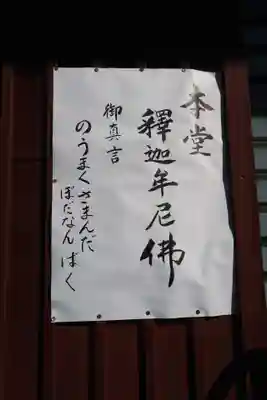 本堂
釋迦牟尼佛
御真言
のうまくさまんだ
ぼだなんばく